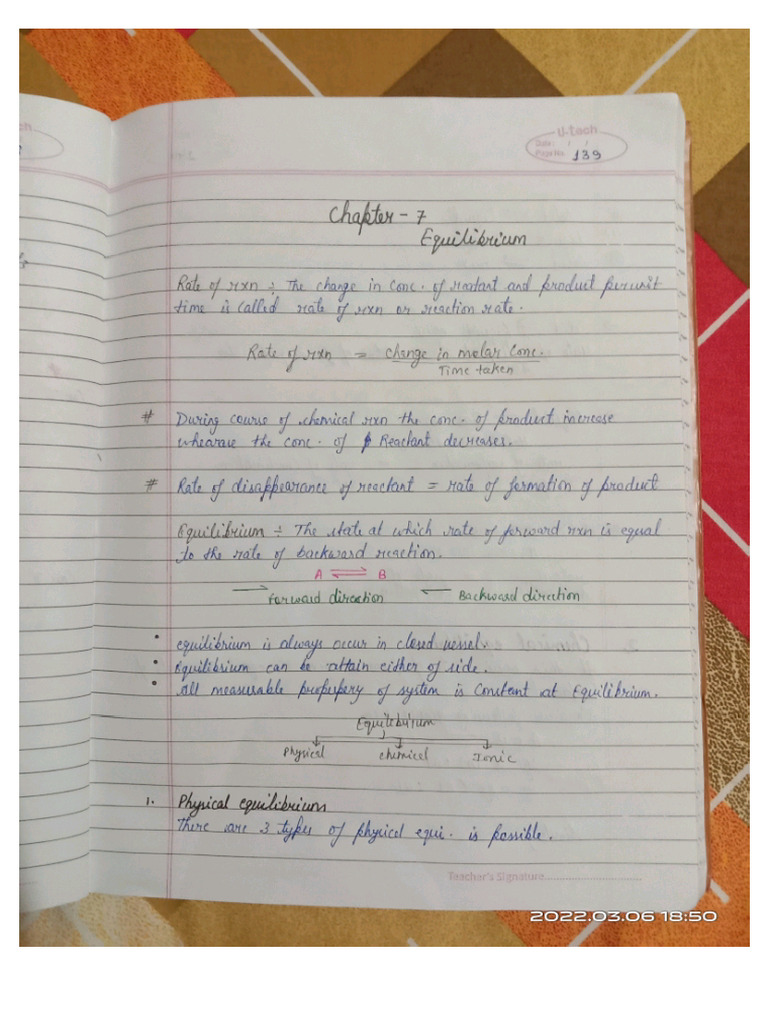 U-tech
Date : / /
Page No. 139
Chapter - 7
Equilibrium
Rate of rxn ÷ The change in conc. of reactant and product per unit
time is called rate of rxn or reaction rate.
Rate of rxn = change in molar conc.
Time taken
# During course of chemical rxn the conc. of product increase
whearase the conc. of Reactant decreases.
# Rate of disappearance of reactant = rate of formation of product
Equilibrium ÷ The state at which rate of forward rxn is equal
to the rate of backward reaction.
A ⇌ B
→ Forward direction ← Backward direction
• equilibrium is always occur in closed vessel.
• Equilibrium can be attain either of side.
• All measurable propepery of system is constant at Equilibrium.
Equilibrium
Physical chemical Ionic
1. Physical equilibrium
There are 3 types of physical equi. is possible.
Teacher's Signature
2022.03.06 18:50